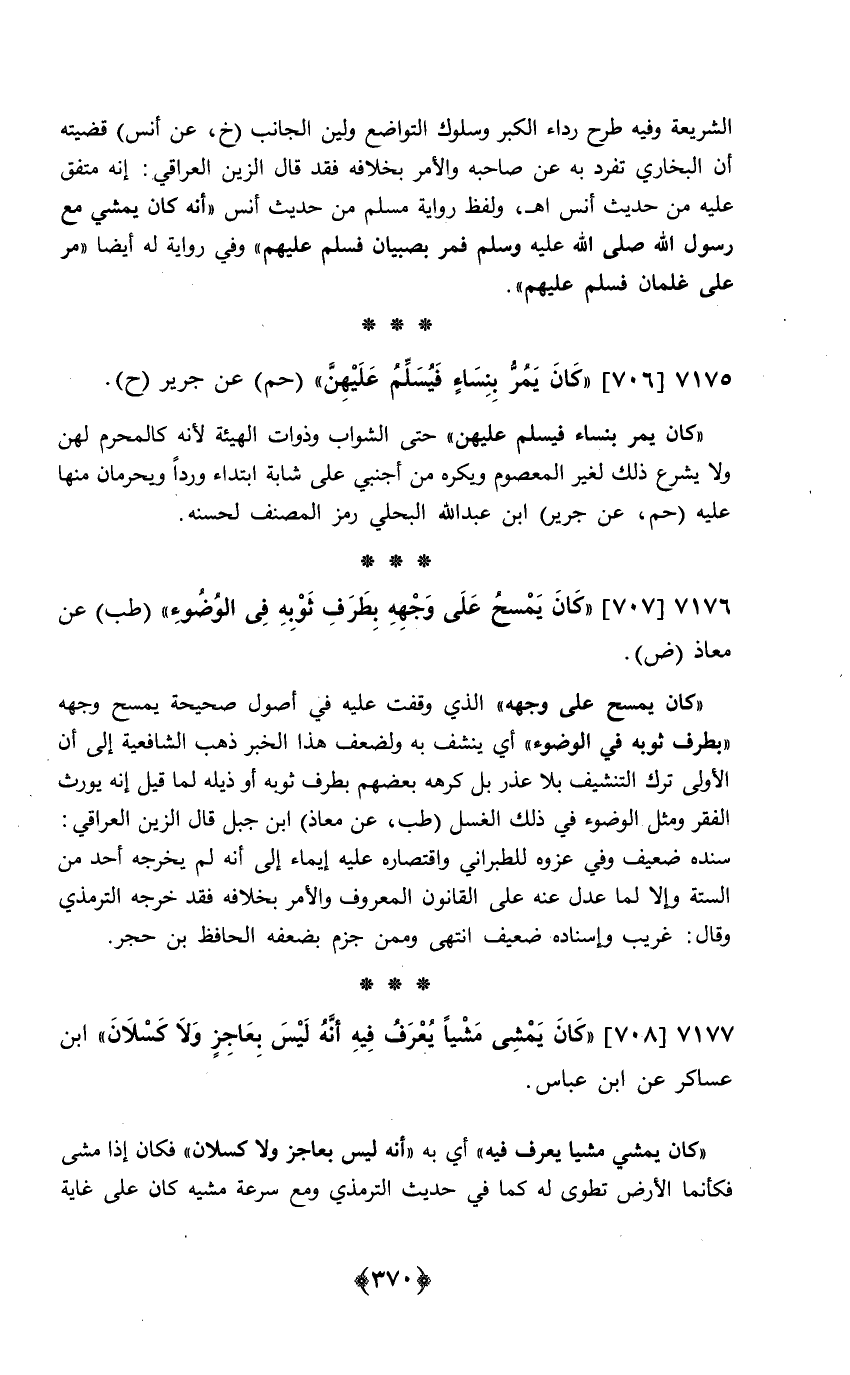 الشريعة وفيه طرح رداء الكبر وسلوك التواضع ولين الجانب (خ، عن أنس) قضيته
أن البخاري تفرد به عن صاحبه والأمر بخلافه فقد قال الزين العراقي: إنه متفق
عليه من حديث أنس اهـ، ولفظ رواية مسلم من حديث أنس «أنه كان يمشي مع
رسول الله صلى الله عليه وسلم فمر بصبيان فسلم عليهم» وفي رواية له أيضا «مر
على غلمان فسلم عليهم».
* * *
٧١٧٥ [٧٠٦] «كَانَ يَمُرُّ بِنِسَاءٍ فَيُسَلِّمُ عَلَيْهِنَّ» (حم) عن جرير (ح).
«كان يمر بنساء فيسلم عليهن» حتى الشواب وذوات الهيئة لأنه كالمحرم لهن
ولا يشرع ذلك لغير المعصوم ويكره من أجنبي على شابة ابتداء ورداً ويحرمان منها
عليه (حم، عن جرير) ابن عبدالله البحلي رمز المصنف لحسنه.
* * *
٧١٧٦ [٧٠٧] «كَانَ يَمْسحُ عَلَى وَجْهِهِ بِطَرَفِ ثَوْبِهِ فِى الوُضُوءِ» (طب) عن
معاذ (ض).
«كان يمسح على وجهه» الذي وقفت عليه في أصول صحيحة يمسح وجهه
«بطرف ثوبه في الوضوء» أي ينشف به ولضعف هذا الخبر ذهب الشافعية إلى أن
الأولى ترك التنشيف بلا عذر بل كرهه بعضهم بطرف ثوبه أو ذيله لما قيل إنه يورث
الفقر ومثل الوضوء في ذلك الغسل (طب، عن معاذ) ابن جبل قال الزين العراقي:
سنده ضعيف وفي عزوه للطبراني واقتصاره عليه إيماء إلى أنه لم يخرجه أحد من
الستة وإلا لما عدل عنه على القانون المعروف والأمر بخلافه فقد خرجه الترمذي
وقال: غريب وإسناده ضعيف انتهى وممن جزم بضعفه الحافظ بن حجر.
* * *
٧١٧٧ [٧٠٨] «كَانَ يَمْشِى مَشْياً يُعْرَفُ فِيهِ أنَّهُ لَيْسَ بِعَاجِزٍ وَلَا كَسْلَانَ» ابن
عساكر عن ابن عباس.
«كان يمشي مشيا يعرف فيه» أي به «أنه ليس بعاجز ولا كسلان» فكان إذا مشى
فكأنما الأرض تطوى له كما في حديث الترمذي ومع سرعة مشيه كان على غاية
﴿٣٧٠﴾